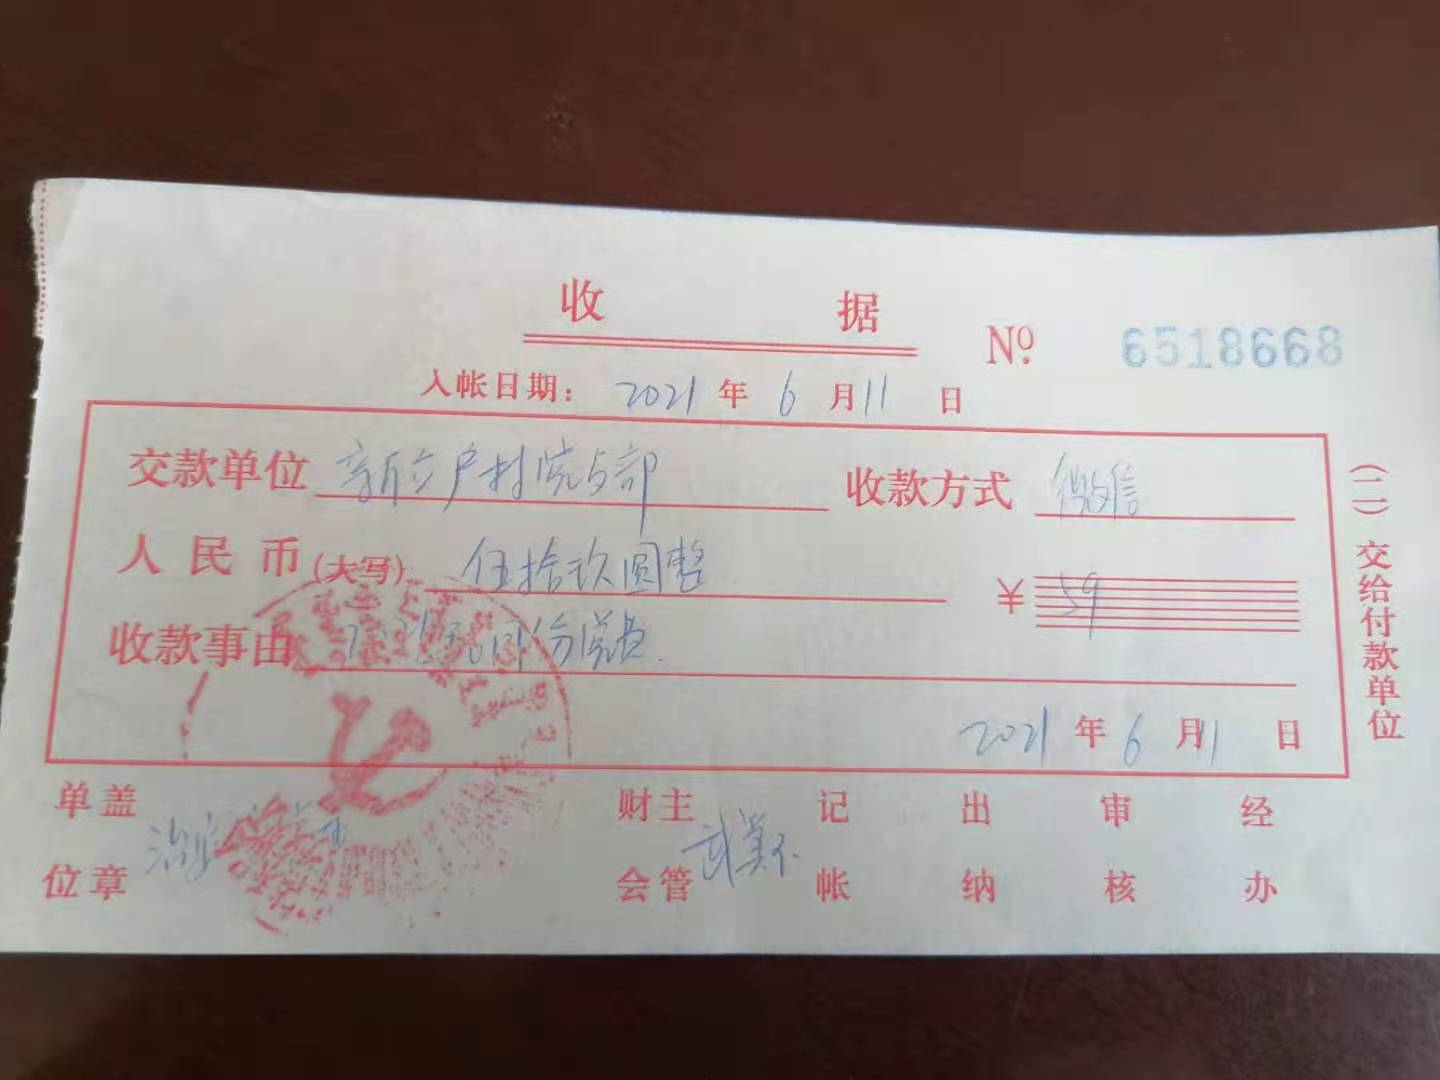 收 据
№ 6518668
入帐日期： 2021 年 6 月 11 日
交款单位 新立户村党支部 收款方式 微信
人民币(大写) 伍拾玖圆整 ￥ 59
收款事由 月份党费
2021 年 6 月 11 日
(二) 交给付款单位
单位盖章
财会主管 武
记帐
出纳
审核
经办